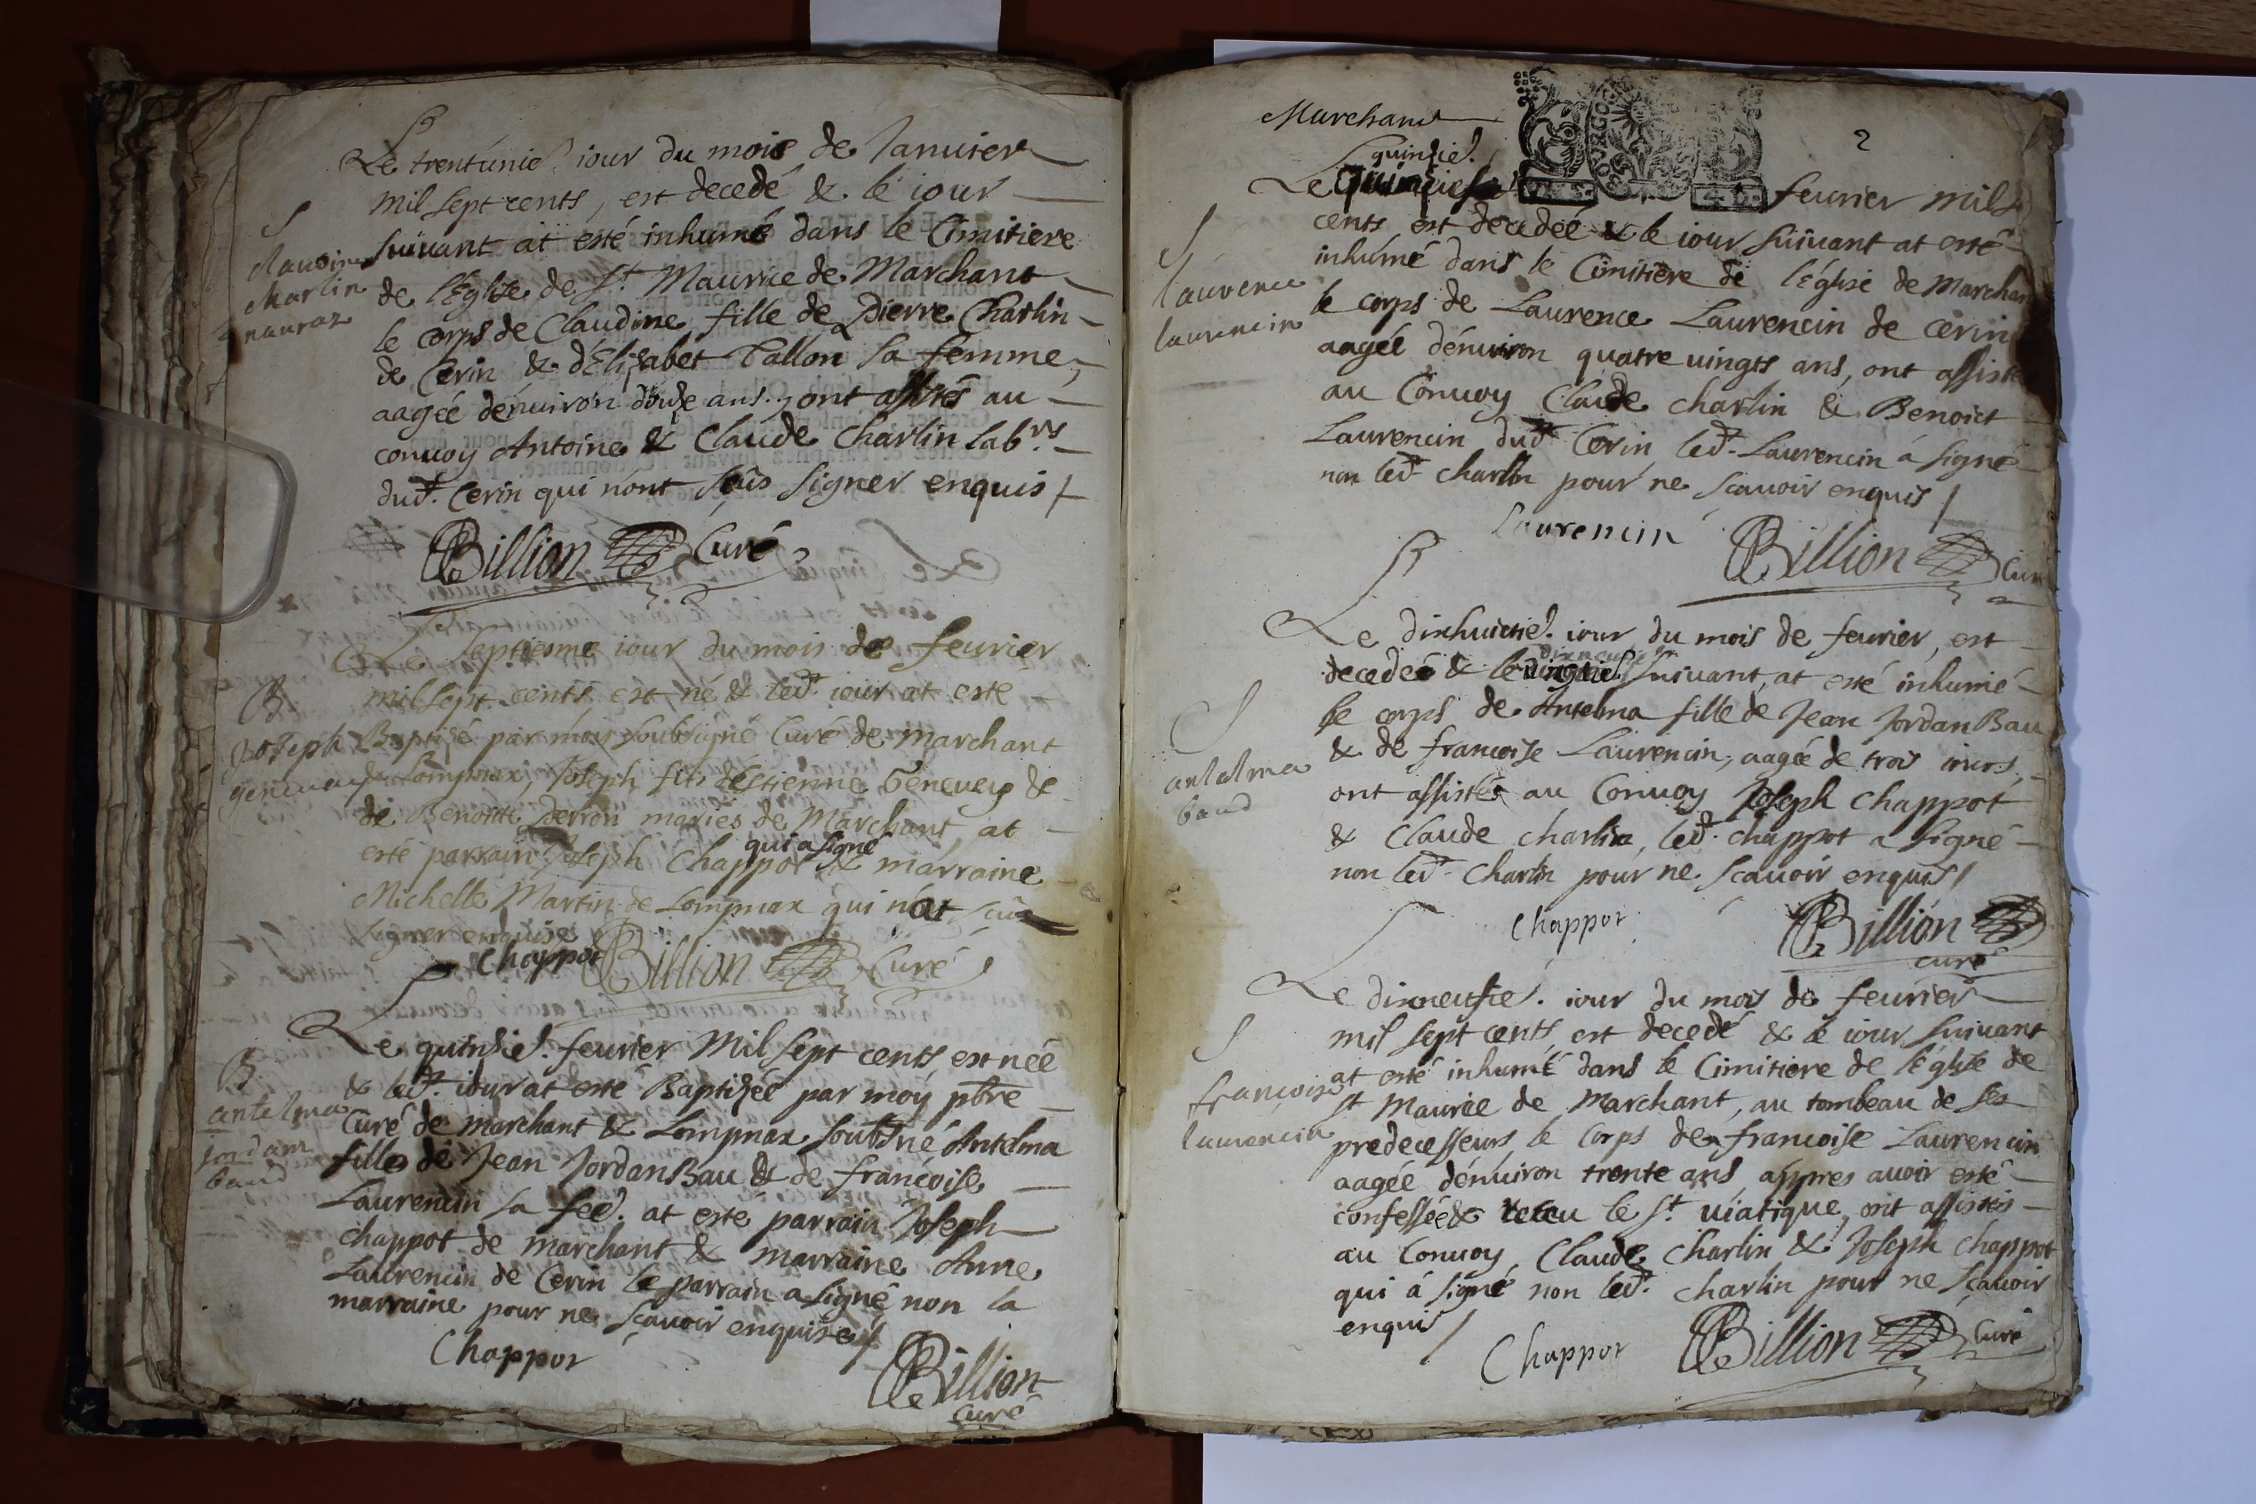 S
Claudine
charlin
nauraz
Le trentúnie. iour du mois de Ianuier
mil sept cents, est decedé & le iour
suiuant at esté inhumé dans le Cimitiere
de l'Eglise de St. Maurice de Marchant
le corps de Claudine fille de Pierre Charlin
de Cerin & d'Elisabet Tallon sa femme,
aagée d'enuiron douze ans, ont assistés au
conuoy Antoine & Claude Charlin lab.rs
dud. Cerin qui n'ont sçus signer enquis /
Billion Curé
B
Joseph
geneuey
Le septiesme iour du mois de feurier
mil sept cents est né & led. iour at esté
Baptisé par mois soubsigné Curé de Marchant
& Lompnax, Joseph fils d'Estienne Geneuey &
de Benoite Perron mariés de Marchant, at
esté parrain Joseph Chappot qui a signé & marraine
Michelle Martin de Lompnax qui n'at sçus
signer enquise
Chappot Billion Curé
B
antelma
jordam
baud
Le quinsie. feurier Mil sept cents, est née
& led. iour at esté Baptisée par moy pbre
Curé de Marchant & Lompnax soubsné Antelma
fille de Jean Jordan Bau & de françoise
Laurencin sa fee. at esté parrain Joseph
chappot de marchant & marraine Anne
Laurencin de Cerin le parrain a signé non la
marraine pour ne scauoir enquise /
Chappot
Billion
Curé
Marchant
2
S
laurence
laurencin
quinsie.
Le feurier mil s
cents est decedéé & le iour suiuant at esté
inhúmé dans le Cimitiere de l'Église de Marchan
le corps de Laurence Laurencin de cerin
aagéé d'enuiron quatre uingts ans, ont assisté
au Conuoy Claude charlin & Benoict
Laurencin dud. Cerin, led. Laurencin á signé
non led. charlin pour ne scauoir enquis /
Laurencin
Billion Curé
S
antelma
baud
Le dixhuictie. iour du mois de feurier, est
decedéé & le dixneufie suiuant, at esté inhumé
le corps de Antelma fille de Jean Jordan Bau
& de francoise Laurencin, aagée de trois iours,
ont assistés au Conuoy Joseph Chappot
& Claude charlin, led. chappot a signé
non led. Charlin pour ne scauoir enquis /
Chappot
Billion
curé
S
françoise
laurencin
Le dixneufie. iour du mois de feurier
mil sept cents est decedé & le iour suiuant
at esté inhumé dans le Cimitiere de l'Église de
St Maurice de Marchant, au tombeau de ses
predecesseurs le corps de francoise Laurencin
aagée d'enuiron trente ans, appres auoir esté
confessée & receu le St. uiatique, ont assistés
au Conuoy Claude Charlin & Joseph Chappot
qui á signé non led. charlin pour ne scauoir
enquis /
Chappot
Billion Curé